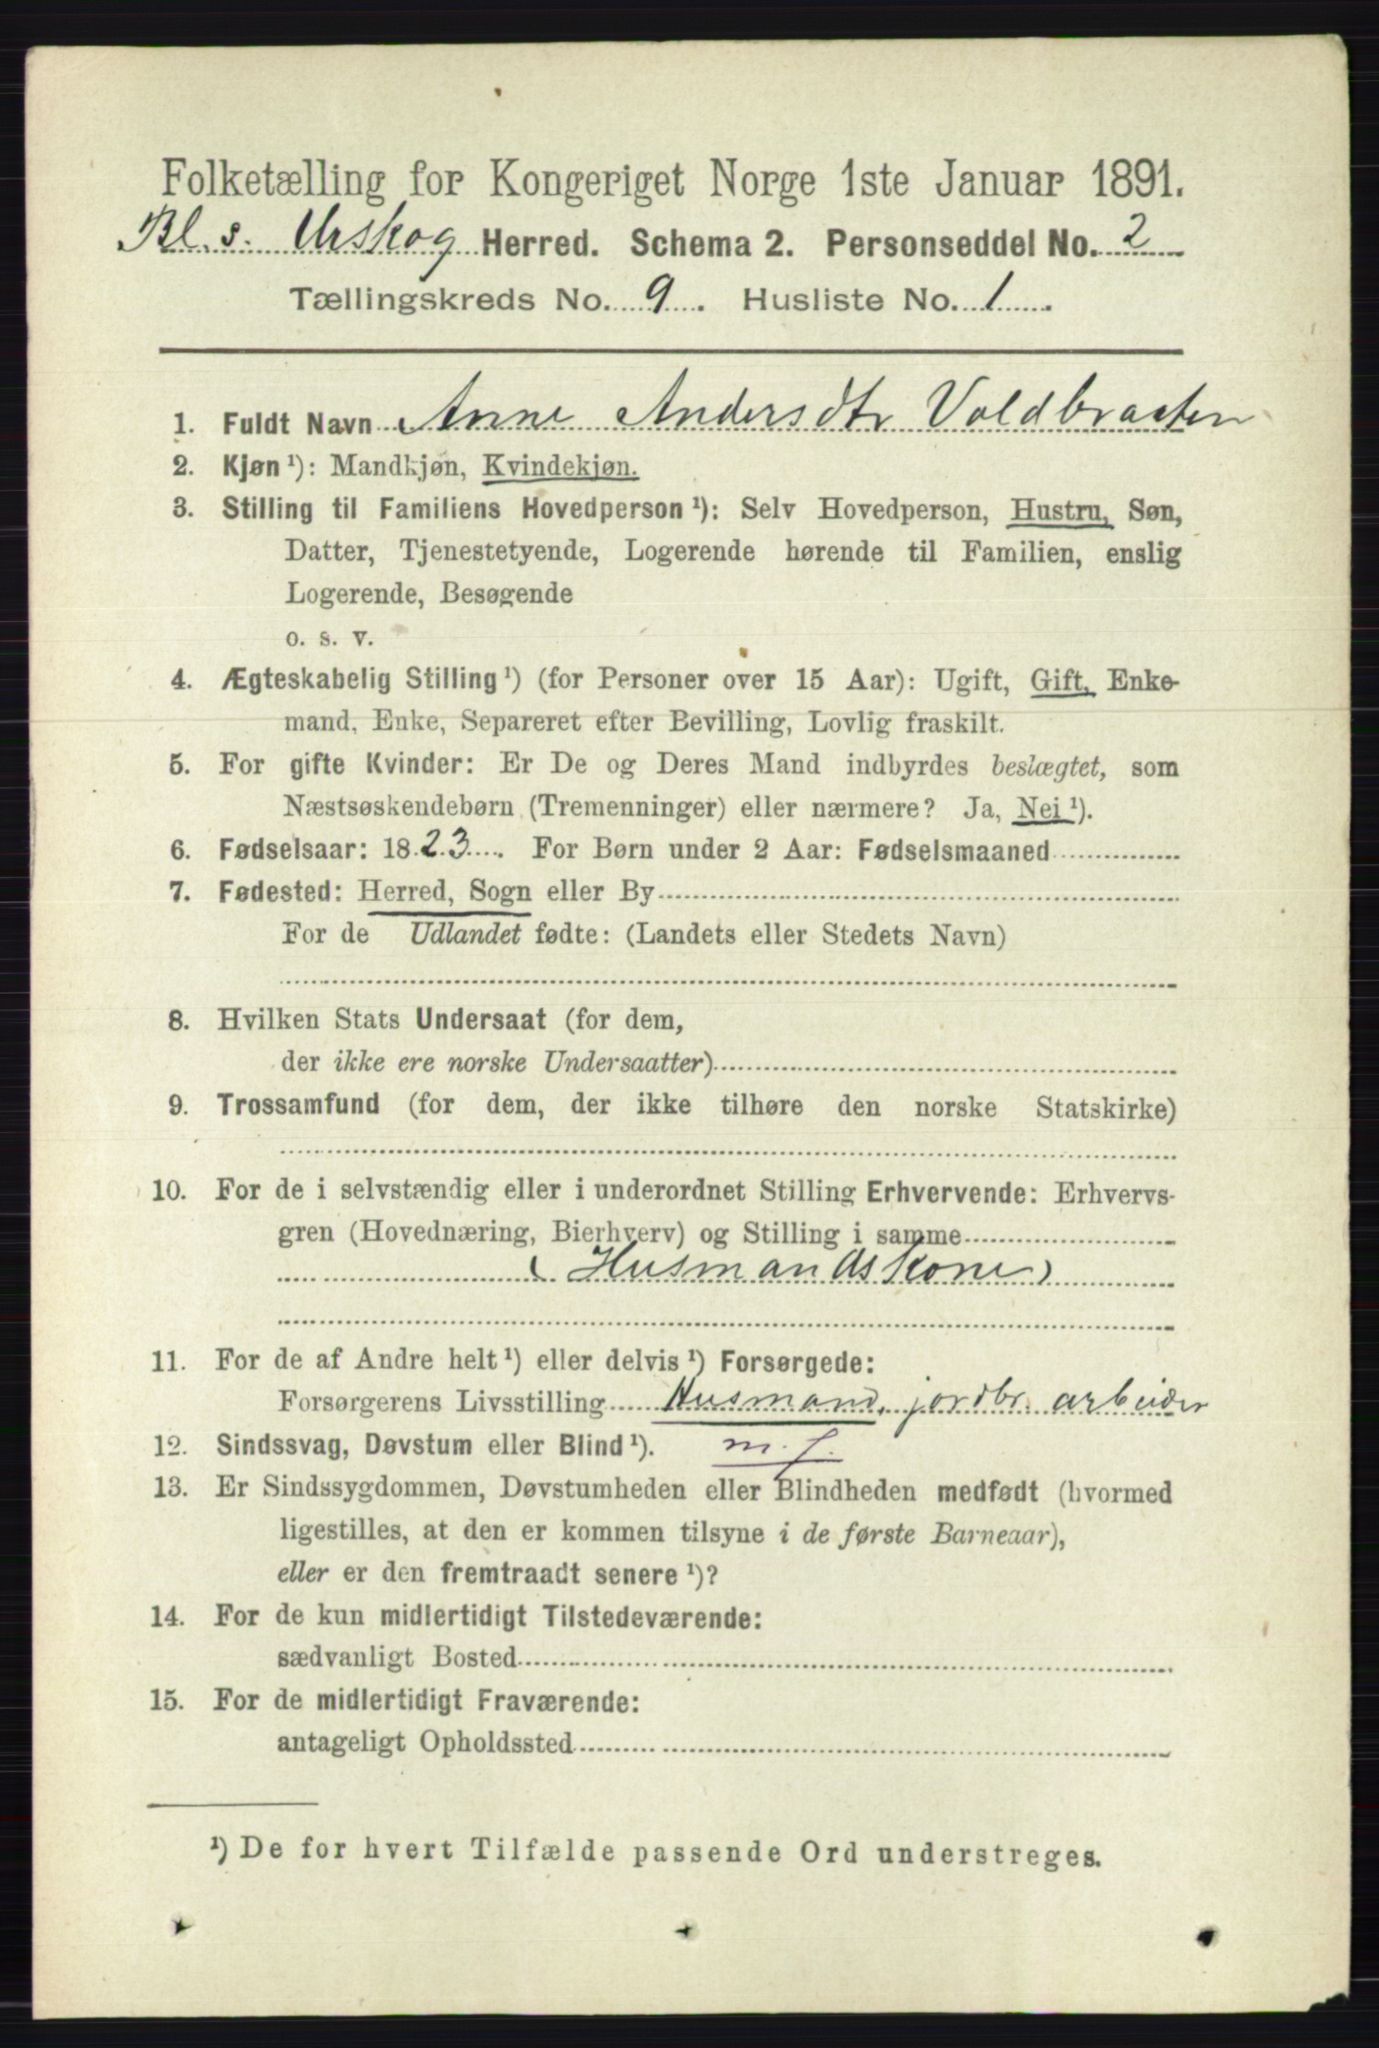 Folketælling for Kongeriget Norge 1ste Januar 1891.
Bl. s. Urskog Herred. Schema 2. Personseddel No. 2
Tællingskreds No. 9. Husliste No. 1
1. Fuldt Navn Anne Andersdtr Voldbraaten
2. Kjøn ¹): Mandkjøn, Kvindekjøn.
3. Stilling til Familiens Hovedperson ¹): Selv Hovedperson, Hustru, Søn,
Datter, Tjenestetyende, Logerende hørende til Familien, enslig
Logerende, Besøgende
o. s. v.
4. Ægteskabelig Stilling ¹) (for Personer over 15 Aar): Ugift, Gift, Enke-
mand, Enke, Separeret efter Bevilling, Lovlig fraskilt.
5. For gifte Kvinder: Er De og Deres Mand indbyrdes beslægtet, som
Næstsøskendebørn (Tremenninger) eller nærmere? Ja, Nei ¹).
6. Fødselsaar: 1823. For Børn under 2 Aar: Fødselsmaaned
7. Fødested: Herred, Sogn eller By
For de Udlandet fødte: (Landets eller Stedets Navn)
8. Hvilken Stats Undersaat (for dem,
der ikke ere norske Undersaatter)
9. Trossamfund (for dem, der ikke tilhøre den norske Statskirke)
10. For de i selvstændig eller i underordnet Stilling Erhvervende: Erhvervs-
gren (Hovednæring, Bierhverv) og Stilling i samme
(Husmandskone)
11. For de af Andre helt ¹) eller delvis ¹) Forsørgede:
Forsørgerens Livsstilling Husmand, jordbr. arbeider
12. Sindssvag, Døvstum eller Blind ¹). m. f.
13. Er Sindssygdommen, Døvstumheden eller Blindheden medfødt (hvormed
ligestilles, at den er kommen tilsyne i de første Barneaar),
eller er den fremtraadt senere ¹)?
14. For de kun midlertidigt Tilstedeværende:
sædvanligt Bosted
15. For de midlertidigt Fraværende:
antageligt Opholdssted
¹) De for hvert Tilfælde passende Ord understreges.